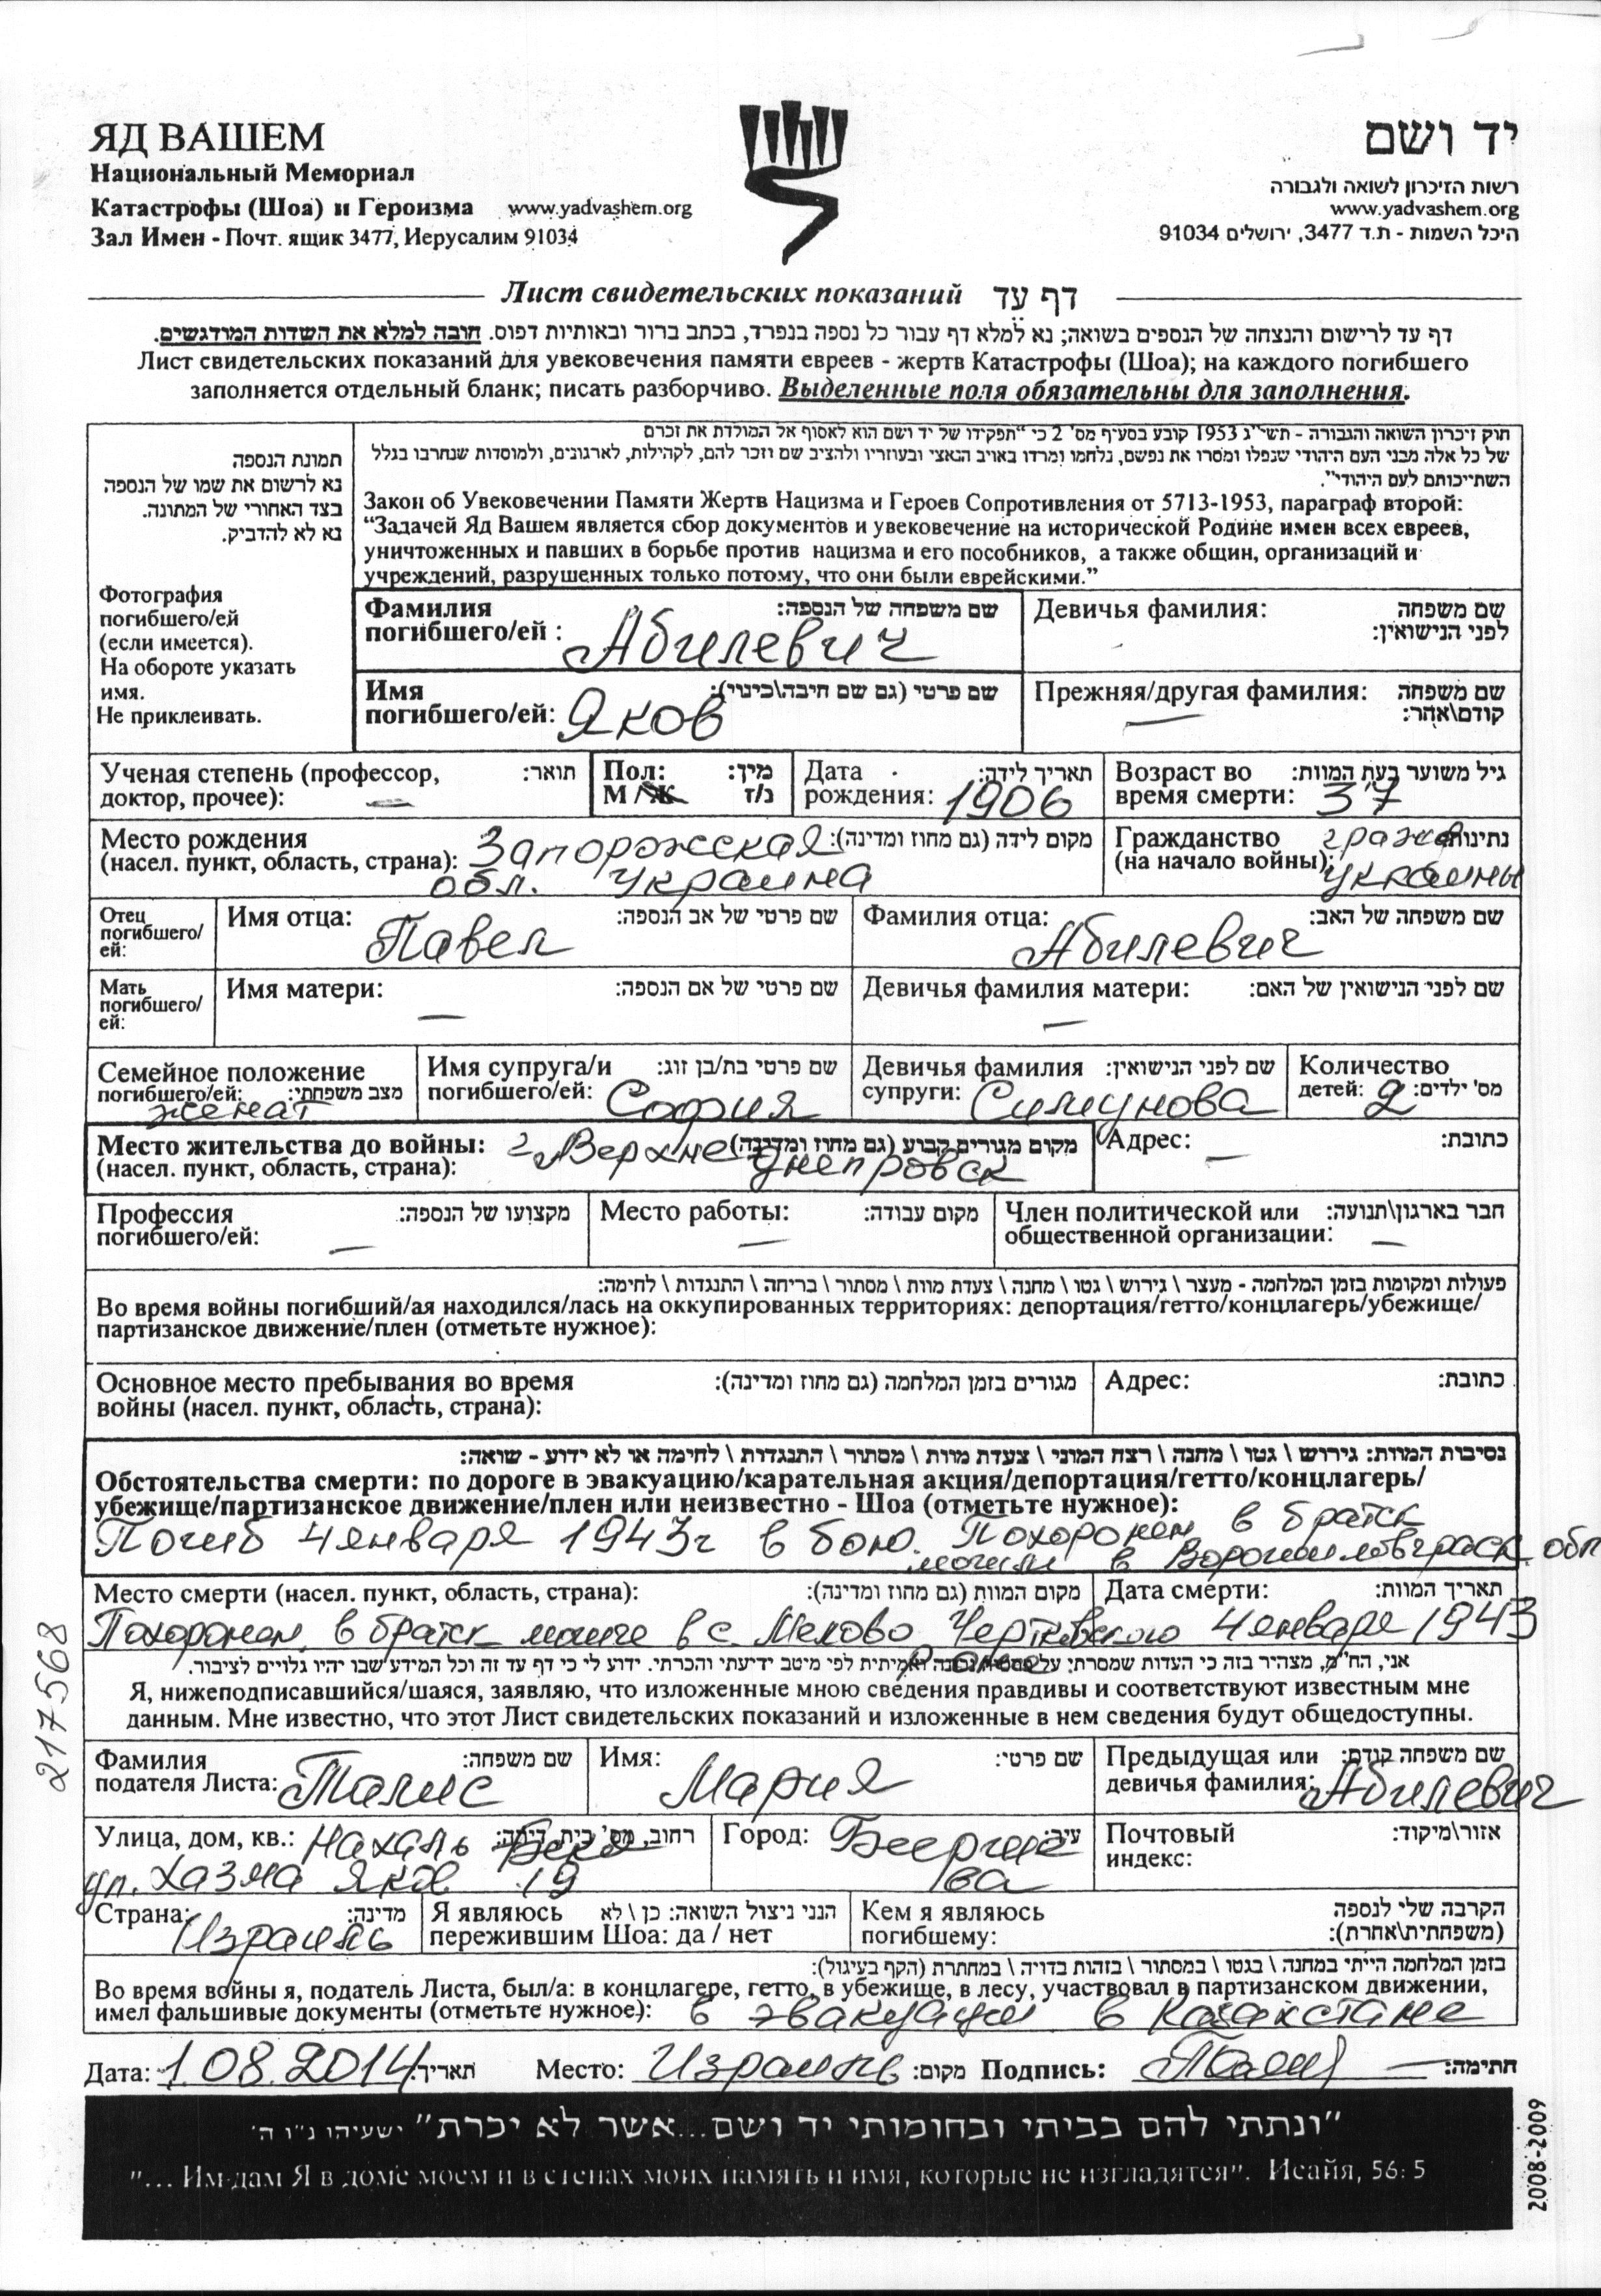 ЯД ВАШЕМ
Национальный Мемориал
Катастрофы (Шоа) и Героизма www.yadvashem.org
Зал Имен - Почт. ящик 3477, Иерусалим 91034
יד ושם
רשות הזיכרון לשואה ולגבורה
www.yadvashem.org
היכל השמות - ת.ד 3477, ירושלים 91034
Лист свидетельских показаний דף עד
דף עד לרישום והנצחה של הנספים בשואה; נא למלא דף עבור כל נספה בנפרד, בכתב ברור ובאותיות דפוס. חובה למלא את השדות המודגשים.
Лист свидетельских показаний для увековечения памяти евреев - жертв Катастрофы (Шоа); на каждого погибшего
заполняется отдельный бланк; писать разборчиво. Выделенные поля обязательны для заполнения.
תמונת הנספה
נא לרשום את שמו של הנספה
בצד האחורי של המתונה.
נא לא להדביק.
Фотография
погибшего/ей
(если имеется).
На обороте указать
имя.
Не приклеивать.
חוק זיכרון השואה והגבורה - תשי"ג 1953 קובע בסעיף מס' 2 כי "תפקידו של יד ושם הוא לאסוף אל המולדת את זכרם
של כל אלה מבני העם היהודי שנפלו ומסרו את נפשם, נלחמו ומרדו באויב הנאצי ובעוזריו ולהציב שם וזכר להם, לקהילות, לארגונים, ולמוסדות שנחרבו בגלל
השתייכותם לעם היהודי".
Закон об Увековечении Памяти Жертв Нацизма и Героев Сопротивления от 5713-1953, параграф второй:
“Задачей Яд Вашем является сбор документов и увековечение на исторической Родине имен всех евреев,
уничтоженных и павших в борьбе против нацизма и его пособников, а также общин, организаций и
учреждений, разрушенных только потому, что они были еврейскими.”
Фамилия שם משפחה של הנספה:
погибшего/ей : Абилевич
Девичья фамилия: שם משפחה
לפני הנישואין:
Имя שם פרטי (גם שם חיבה\כינוי):
погибшего/ей: Яков
Прежняя/другая фамилия: שם משפחה
קודם\אחר:
Ученая степень (профессор, תואר:
доктор, прочее): —
Пол: מין:
М / Ж ז/נ
Дата תאריך לידה:
рождения: 1906
Возраст во גיל משוער בעת המוות:
время смерти: 37
Место рождения מקום לידה (גם מחוז ומדינה):
(насел. пункт, область, страна): Запорожская
обл. Украина
Гражданство נתינות
(на начало войны): Украины
Отец
погибшего/
ей:
Имя отца: שם פרטי של אב הנספה:
Павел
Фамилия отца: שם משפחה של האב:
Абилевич
Мать
погибшего/
ей:
Имя матери: שם פרטי של אם הנספה:
—
Девичья фамилия матери: שם לפני הנישואין של האם:
—
Семейное положение
погибшего/ей: מצב משפחתי:
женат
Имя супруга/и שם פרטי בת/בן זוג:
погибшего/ей: София
Девичья фамилия שם לפני הנישואין:
супруги: Симунова
Количество
детей: 2 מס' ילדים:
Место жительства до войны: מקום מגורים קבוע (גם מחוז ומדינה)
(насел. пункт, область, страна): г Верхне
днепровск
Адрес: — כתובת:
Профессия מקצועו של הנספה:
погибшего/ей: —
Место работы: מקום עבודה:
—
Член политической или חבר בארגון\תנועה:
общественной организации: —
פעולות ומקומות בזמן המלחמה - מעצר \ גירוש \ גטו \ מחנה \ צעדת מוות \ מסתור \ בריחה \ התנגדות \ לחימה:
Во время войны погибший/ая находился/лась на оккупированных территориях: депортация/гетто/концлагерь/убежище/
партизанское движение/плен (отметьте нужное):
Основное место пребывания во время מגורים בזמן המלחמה (גם מחוז ומדינה):
войны (насел. пункт, область, страна):
Адрес: כתובת:
נסיבות המוות: גירוש \ גטו \ מחנה \ רצח המוני \ צעדת מוות \ מסתור \ התנגדות \ לחימה או לא ידוע - שואה:
Обстоятельства смерти: по дороге в эвакуацию/карательная акция/депортация/гетто/концлагерь/
убежище/партизанское движение/плен или неизвестно - Шоа (отметьте нужное):
Погиб 4 января 1943г в бою. Похоронен в братск
могили в Ворошиловградск. обл
Место смерти (насел. пункт, область, страна): מקום המוות (גם מחוז ומדינה):
Дата смерти: תאריך המוות:
Похоронен в братск могиле в с. Мелово Чертковского 4 января 1943
אני, הח"מ, מצהיר בזה כי העדות שמסרתי על ידיעתי והכרתי. ידוע לי כי דף עד זה וכל המידע שבו יהיו גלויים לציבור.
Я, нижеподписавшийся/шаяся, заявляю, что изложенные мною сведения правдивы и соответствуют известным мне
данным. Мне известно, что этот Лист свидетельских показаний и изложенные в нем сведения будут общедоступны.
Фамилия שם משפחה:
подателя Листа: Талис
Имя: שם פרטי:
Мария
Предыдущая или שם משפחה קודם:
девичья фамилия: Абилевич
Улица, дом, кв.: Нахаль Бека
ул. Хазма Яков 19
Город: Беерше
ва
Почтовый אזור\מיקוד:
индекс:
Страна: מדינה:
Израиль
Я являюсь הנני ניצול השואה: כן \ לא
пережившим Шоа: да / нет
Кем я являюсь הקרבה שלי לנספה
погибшему: (משפחתית\אחרת):
בזמן המלחמה הייתי במחנה \ בגטו \ במסתור \ בזהות בדויה \ במחתרת (הקף בעיגול):
Во время войны я, податель Листа, был/а: в концлагере, гетто, в убежище, в лесу, участвовал в партизанском движении,
имел фальшивые документы (отметьте нужное): в эвакуации в Казахстане
Дата: 1.08.2014 תאריך: Место: Израиль מקום: Подпись: חתימה:
"ונתתי להם בביתי ובחומותי יד ושם...אשר לא יכרת" ישעיהו נ"ו ה'
"... Им дам Я в доме моем и в стенах моих память и имя, которые не изгладятся". Исайя, 56: 5
217568
2008-2009